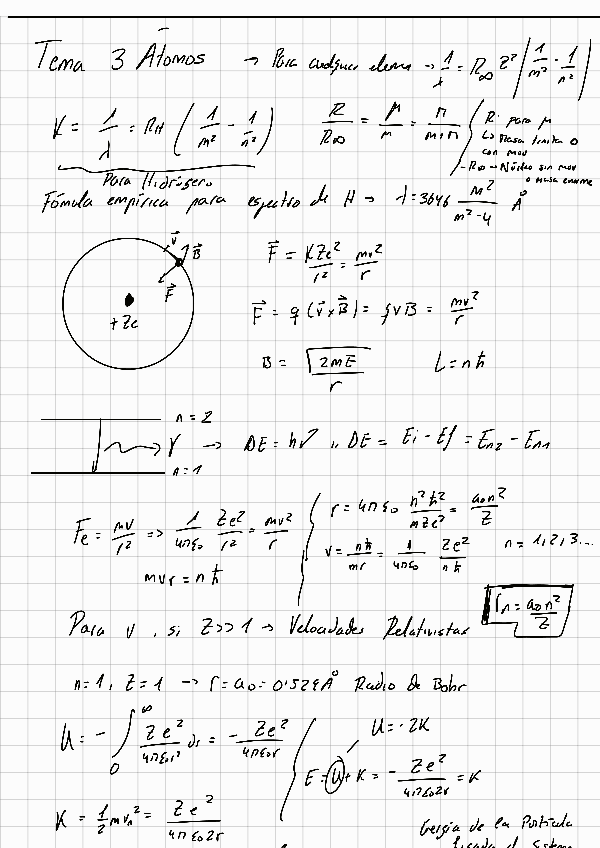 Tema 3 Átomos → Para cualquier elemen → 1/λ = R∞ Z² (1/m² - 1/n²)
K = 1/λ = RH (1/m² - 1/n²)
R/R∞ = μ/m = M/(m+M)
R: para μ
↳ Masa finita o
con mov
- R∞ → Núcleo sin mov
o masa enorme
Para Hidrógeno
Fómula empírica para espectro de H → λ = 3646 m²/(m²-4) Å
v⃗
B⃗
F⃗
+Ze
F⃗ = KZe²/r² = mv²/r
F⃗ = q (v⃗ x B⃗) = qvB = mv²/r
B = √(2mE)/r
L = nħ
n = 2
γ → DE = hν ,, DE = Ei - Ef = En2 - En1
n = 1
Fe = mv/r² => 1/4πε0 Ze²/r² = mv²/r
mvr = nħ
r = 4πε0 n²ħ²/mZe² = a0n²/Z
v = nħ/mr = 1/4πε0 Ze²/nħ
n = 1,2,3...
rn = a0n²/Z
Para v, si Z>>1 → Velocidades Relativistas
n=1, Z=1 → r = a0 = 0'529Å Radio de Bohr
U = - ∫0^∞ Ze²/4πε0r² dr = - Ze²/4πε0r
U = -2K
E = U + K = - Ze²/4πε02r = K
K = 1/2 mvn² = Ze²/4πε02r
de la Partícula